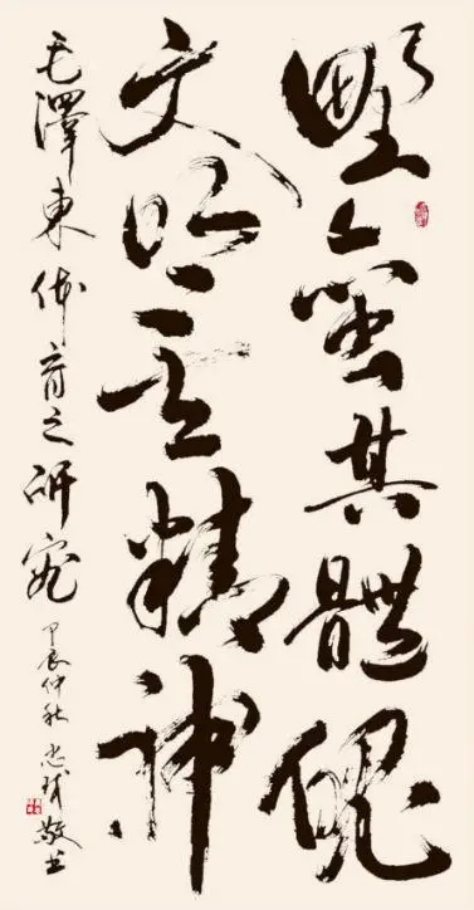 野蛮其體魄
文明其精神
毛澤東体育之研究
甲辰仲秋 敬书